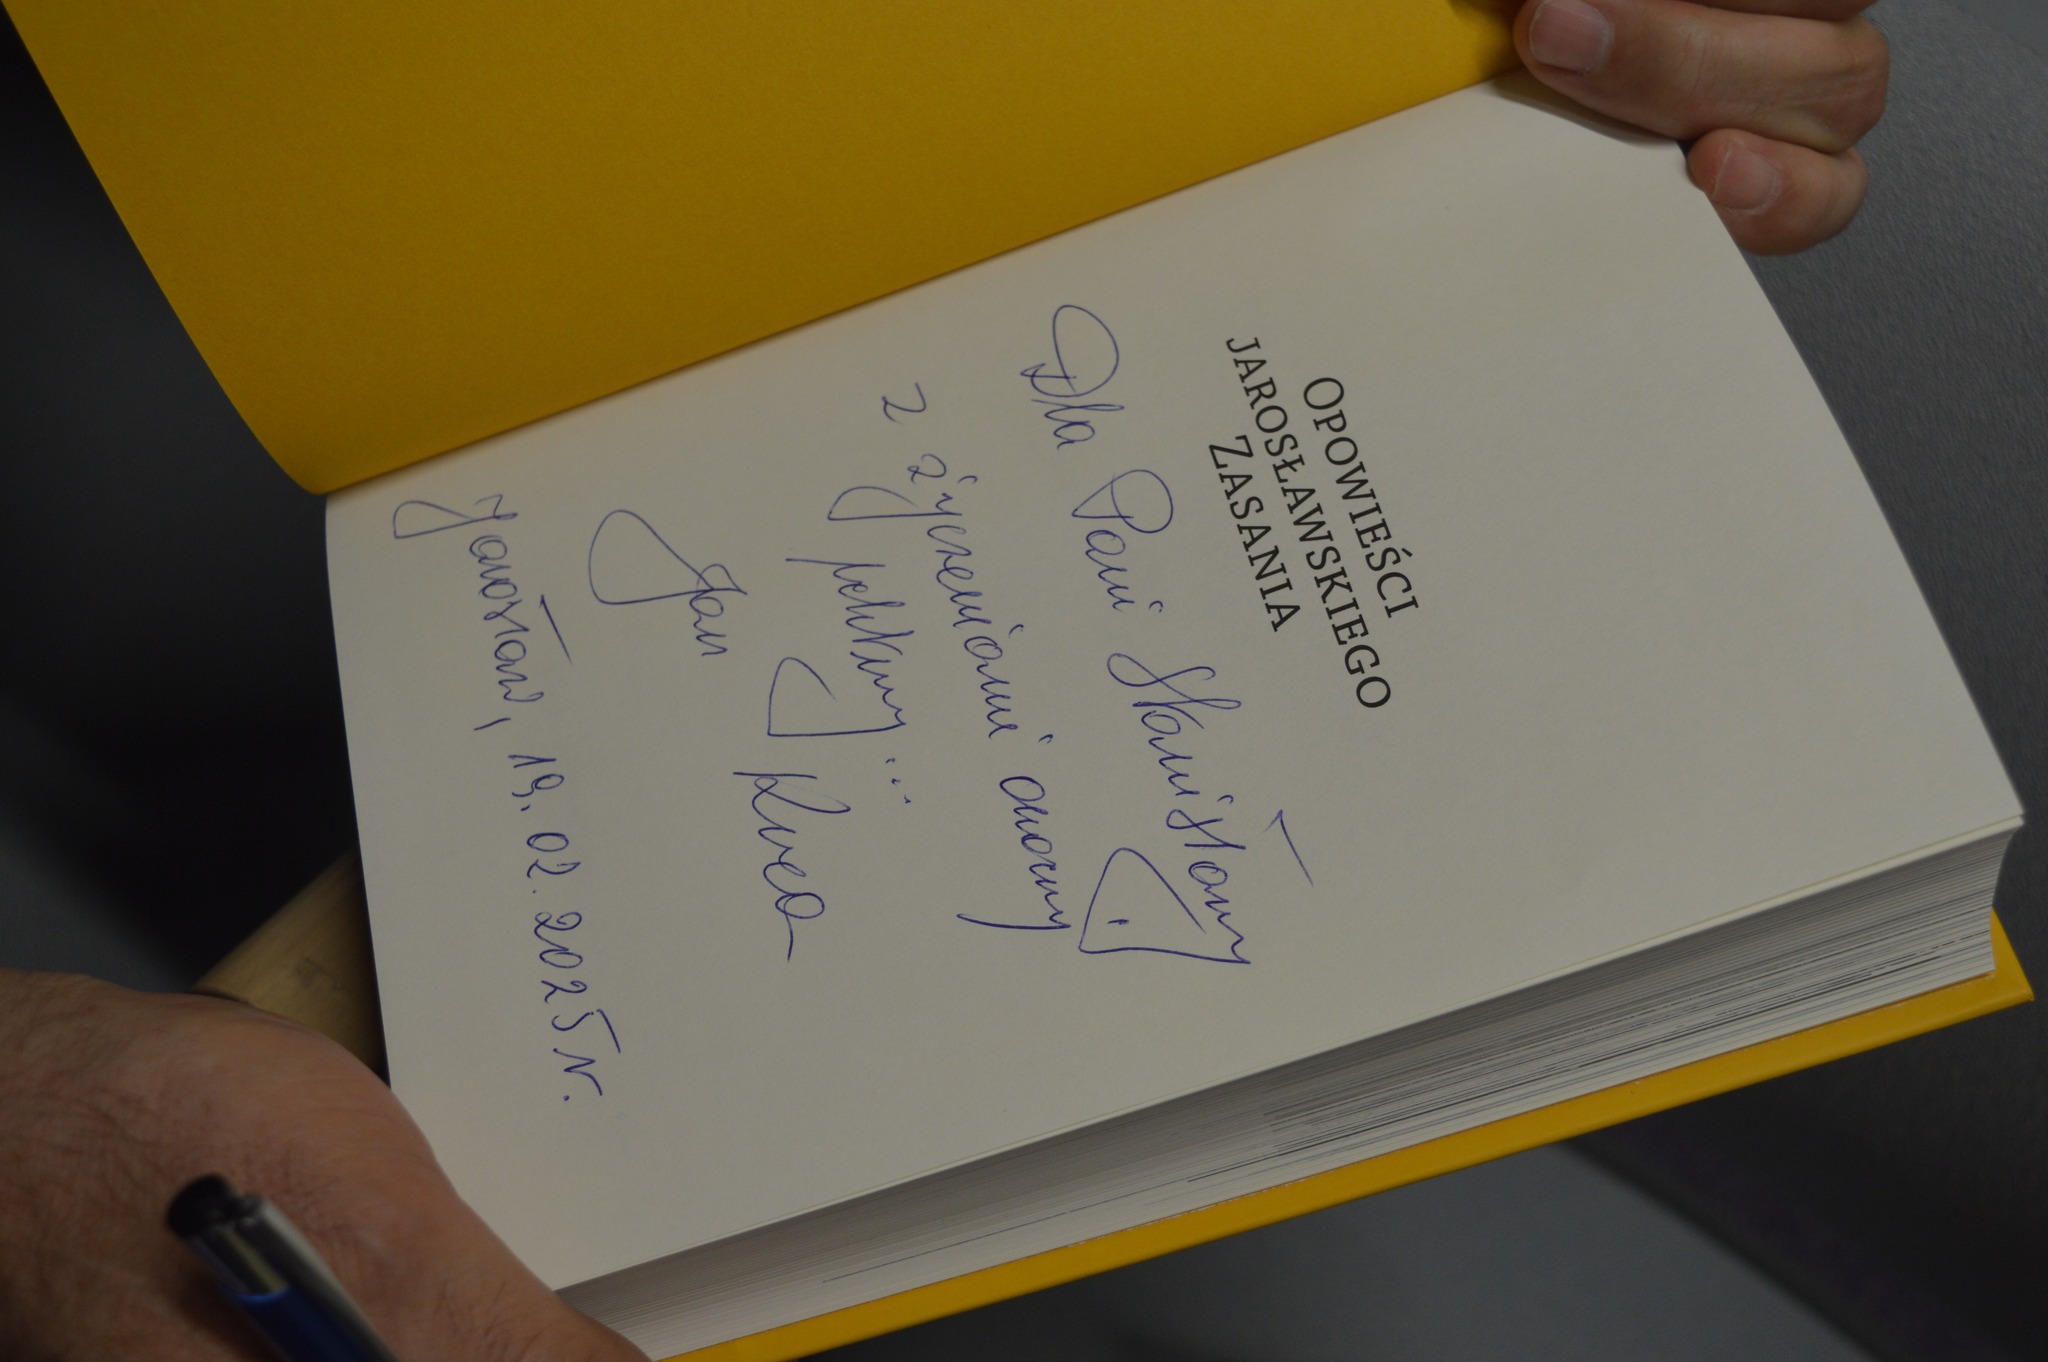 OPOWIEŚCI
JAROSŁAWSKIEGO
ZASANIA
Dla Pani Stanisławy
z życzeniami owocnej
lektury...
Jan Kuca
Jarosław, 19.02.2025 r.